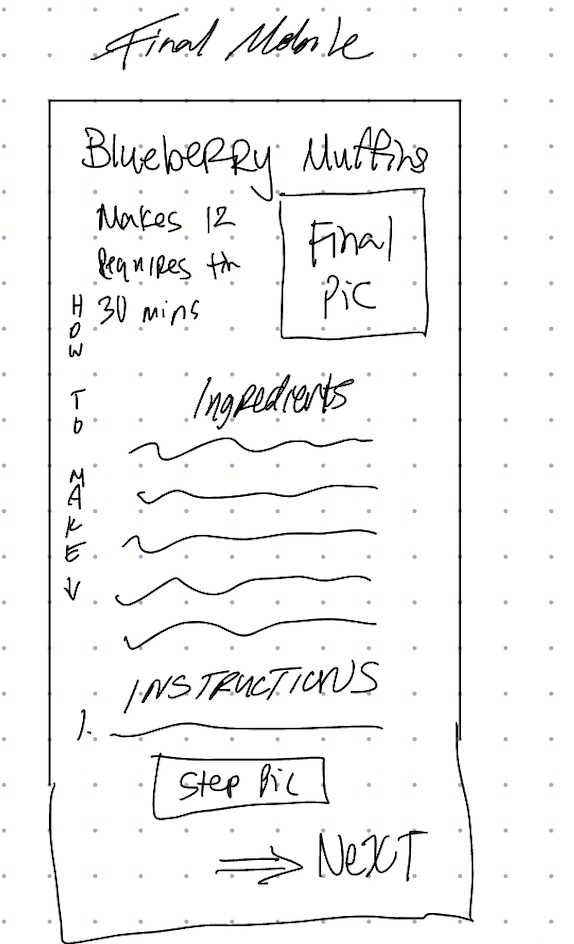 Final Mobile
Blueberry Muffins
Makes 12
Requires
30 mins
Final
Pic
HOW TO MAKE ↓
Ingredients
INSTRUCTIONS
1.
Step Pic
⇒ NeXT